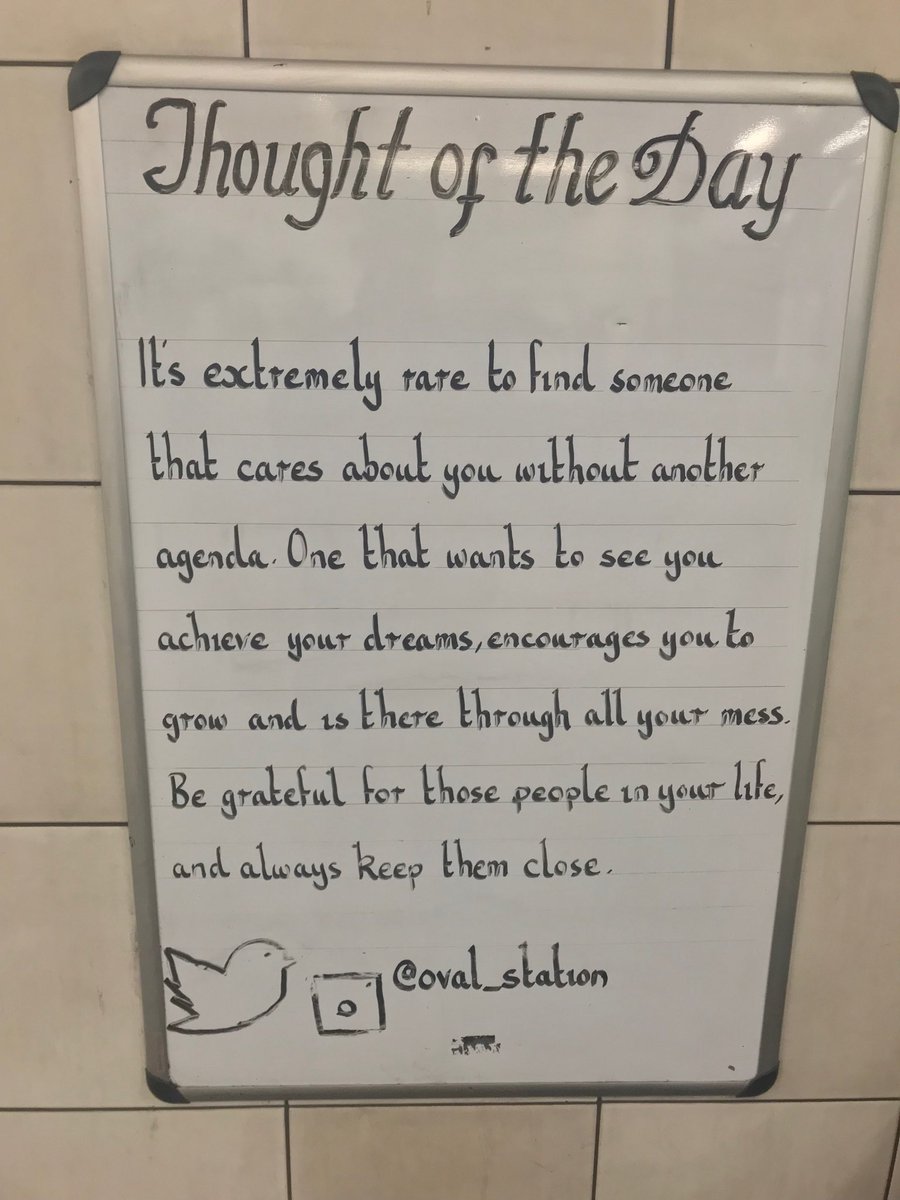 Thought of the Day
It's extremely rare to find someone
that cares about you without another
agenda. One that wants to see you
achieve your dreams, encourages you to
grow and is there through all your mess.
Be grateful for those people in your life,
and always keep them close.
@oval_station